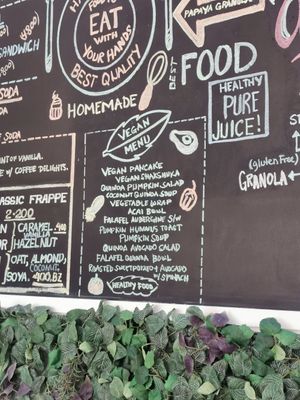 PAPAYA GRANOLA
FOOD TO
EAT
WITH
YOUR HANDS
BEST QUALITY
SANDWICH
BEST
FOOD
HOMEMADE
SODA
HEALTHY
PURE
JUICE!
VEGAN
MENU
VEGAN PANCAKE
VEGAN SHAKSHUKA
QUINOA PUMPKIN SALAD
COCONUT QUINOA SOUP
VEGETABLE WRAP
ACAI BOWL
FALAFEL AUBERGINE S/W
PUMPKIN HUMMUS TOAST
PUMPKIN SOUP
QUINOA AVOCADO SALAD
FALAFEL QUINOA BOWL
ROASTED SWEETPOTATO & AVOCADO
W/ SPINACH
HEALTHY FOOD
SODA
OF VANILLA.
W/ COFFEE DELIGHTS.
FRAPPE
2-200
CARAMEL
HAZELNUT
OAT, ALMOND,
COCONUT,
SOYA
(gluten Free)
GRANOLA